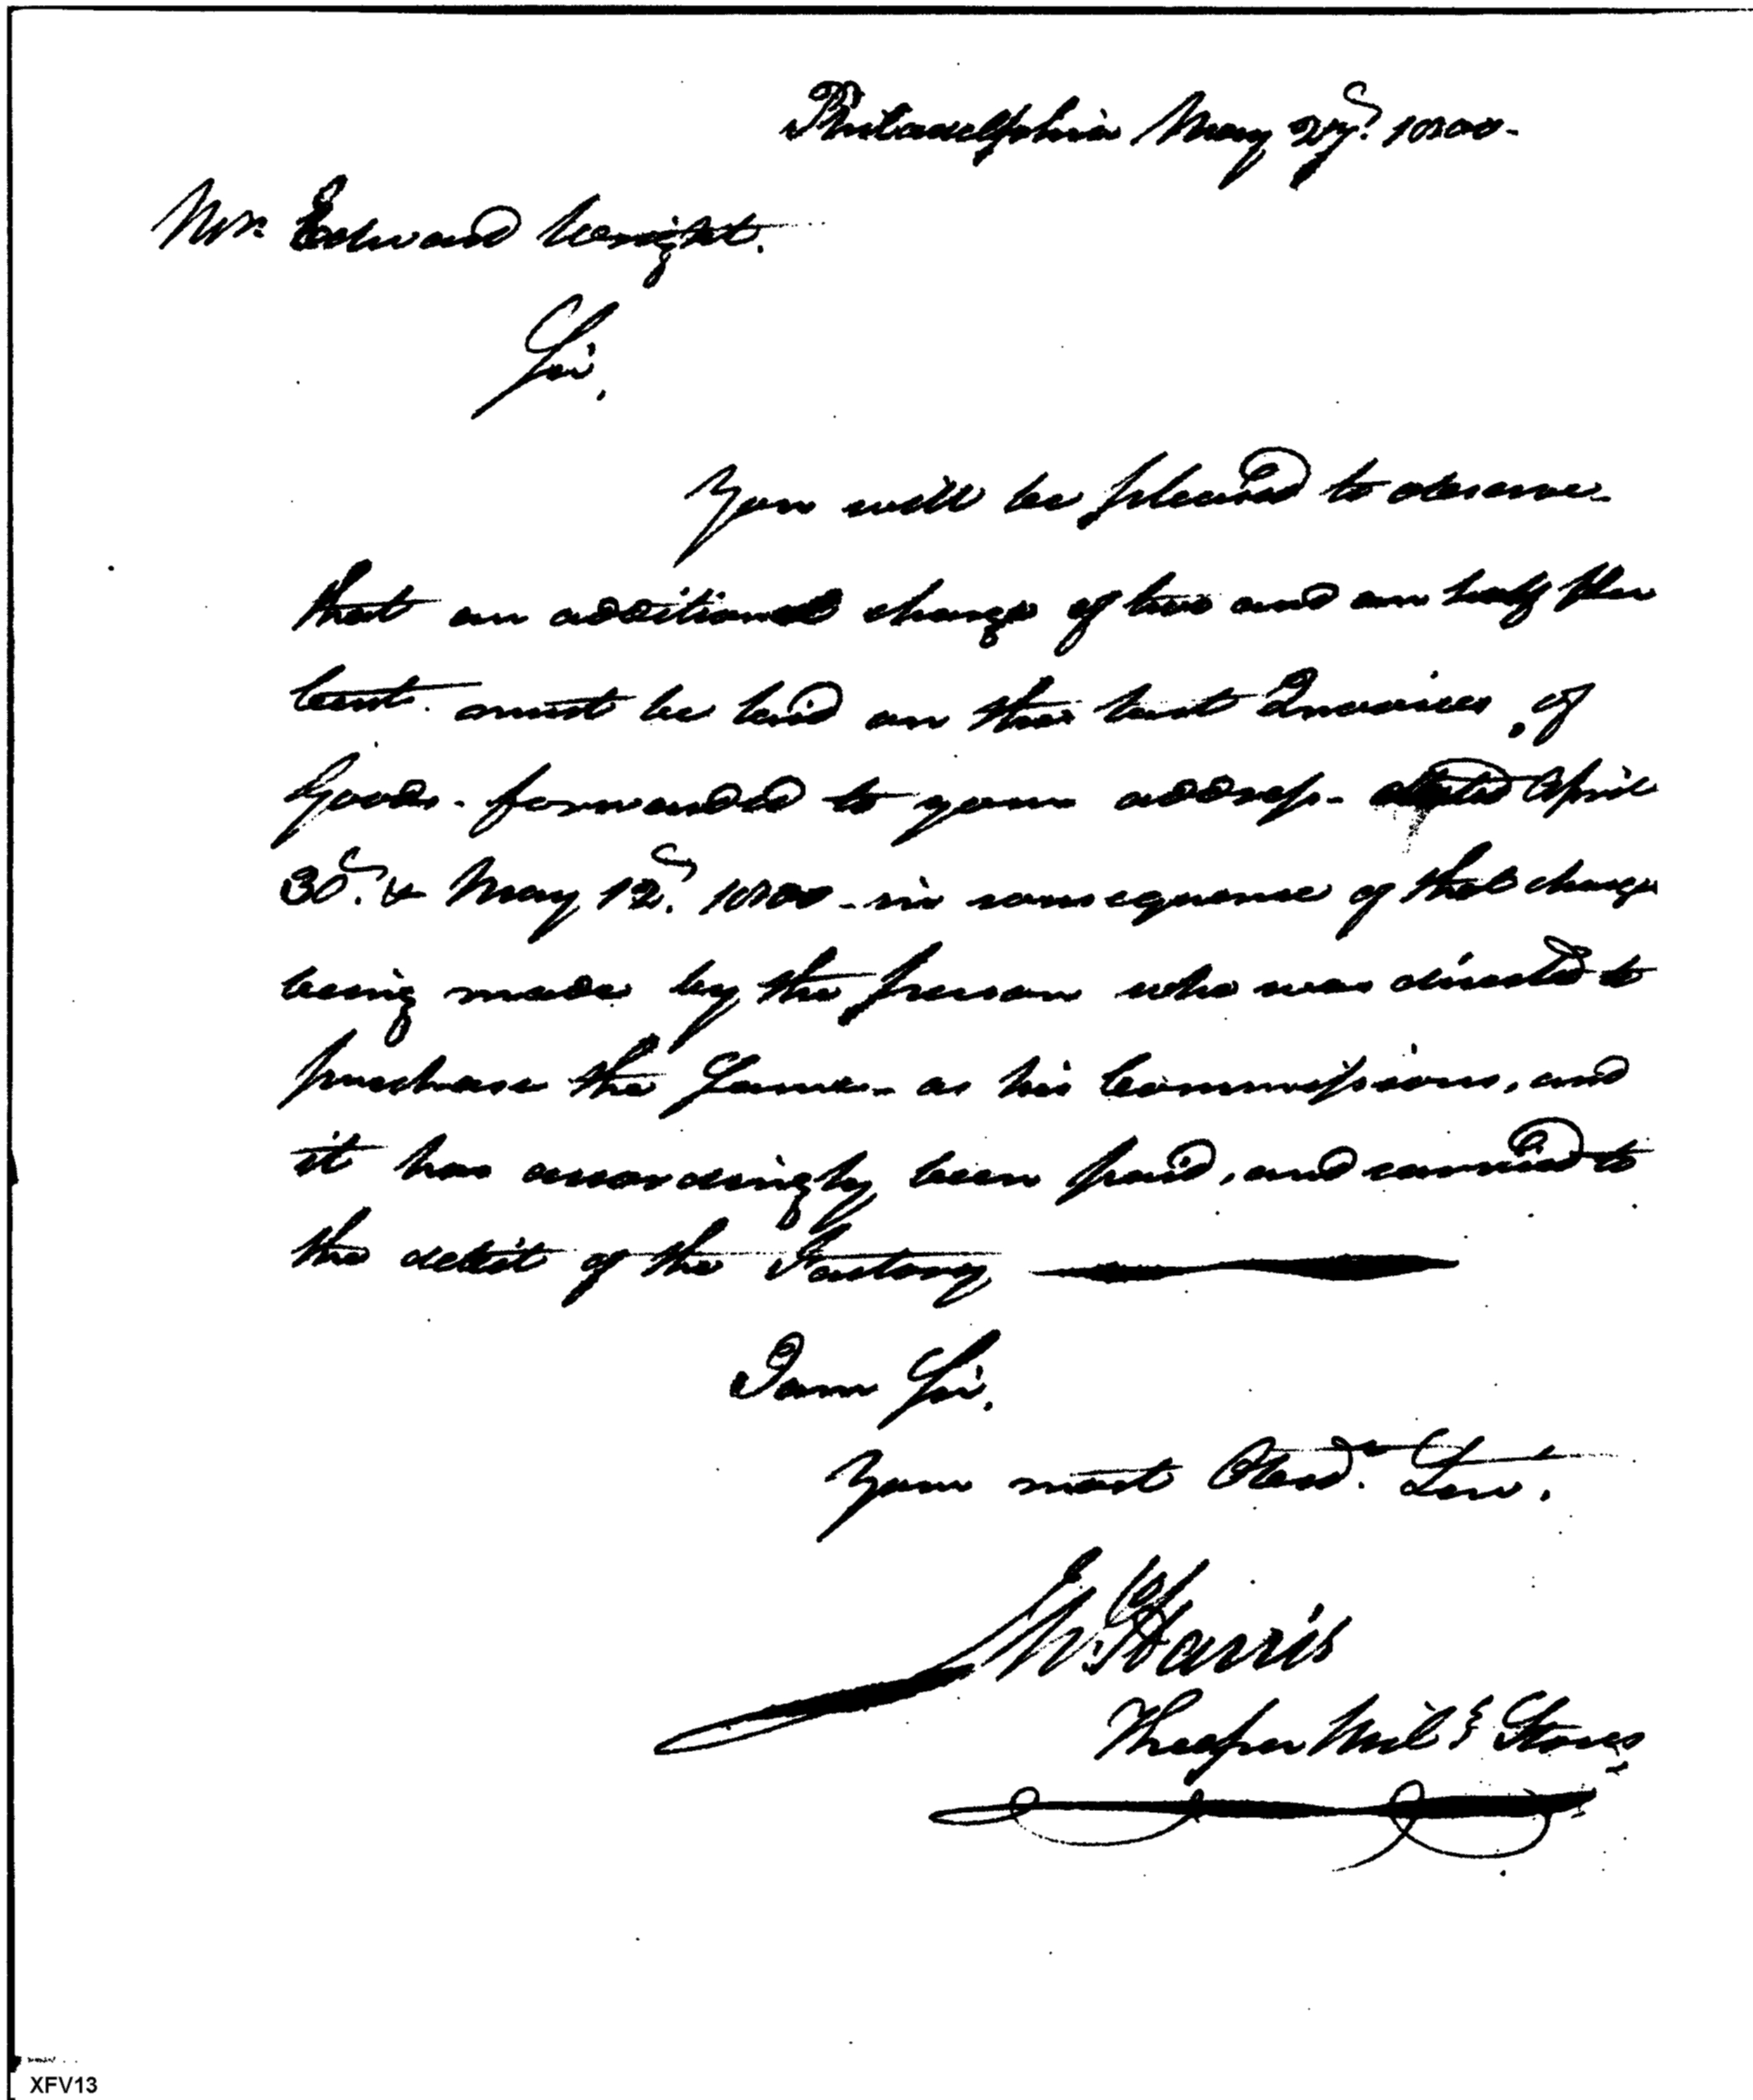 Philadelphia May 27th. 1800-
Mr. Edward Wright.
Sir,
You will be pleased to observe
that an additional charge of two and an half Per
Cent. must be laid on the last Invoices, of
Goods - forwarded to your address - dated April
30th. & May 12th. 1800 - in consequence of that charge
being made by the person who was directed to
purchase the Same - as his Commission, and
it has accordingly been paid, and carried to
the debit of the Factory
I am Sir,
Your most Obedt. Serv.
Harris
Keeper Mily Stores
XFV13